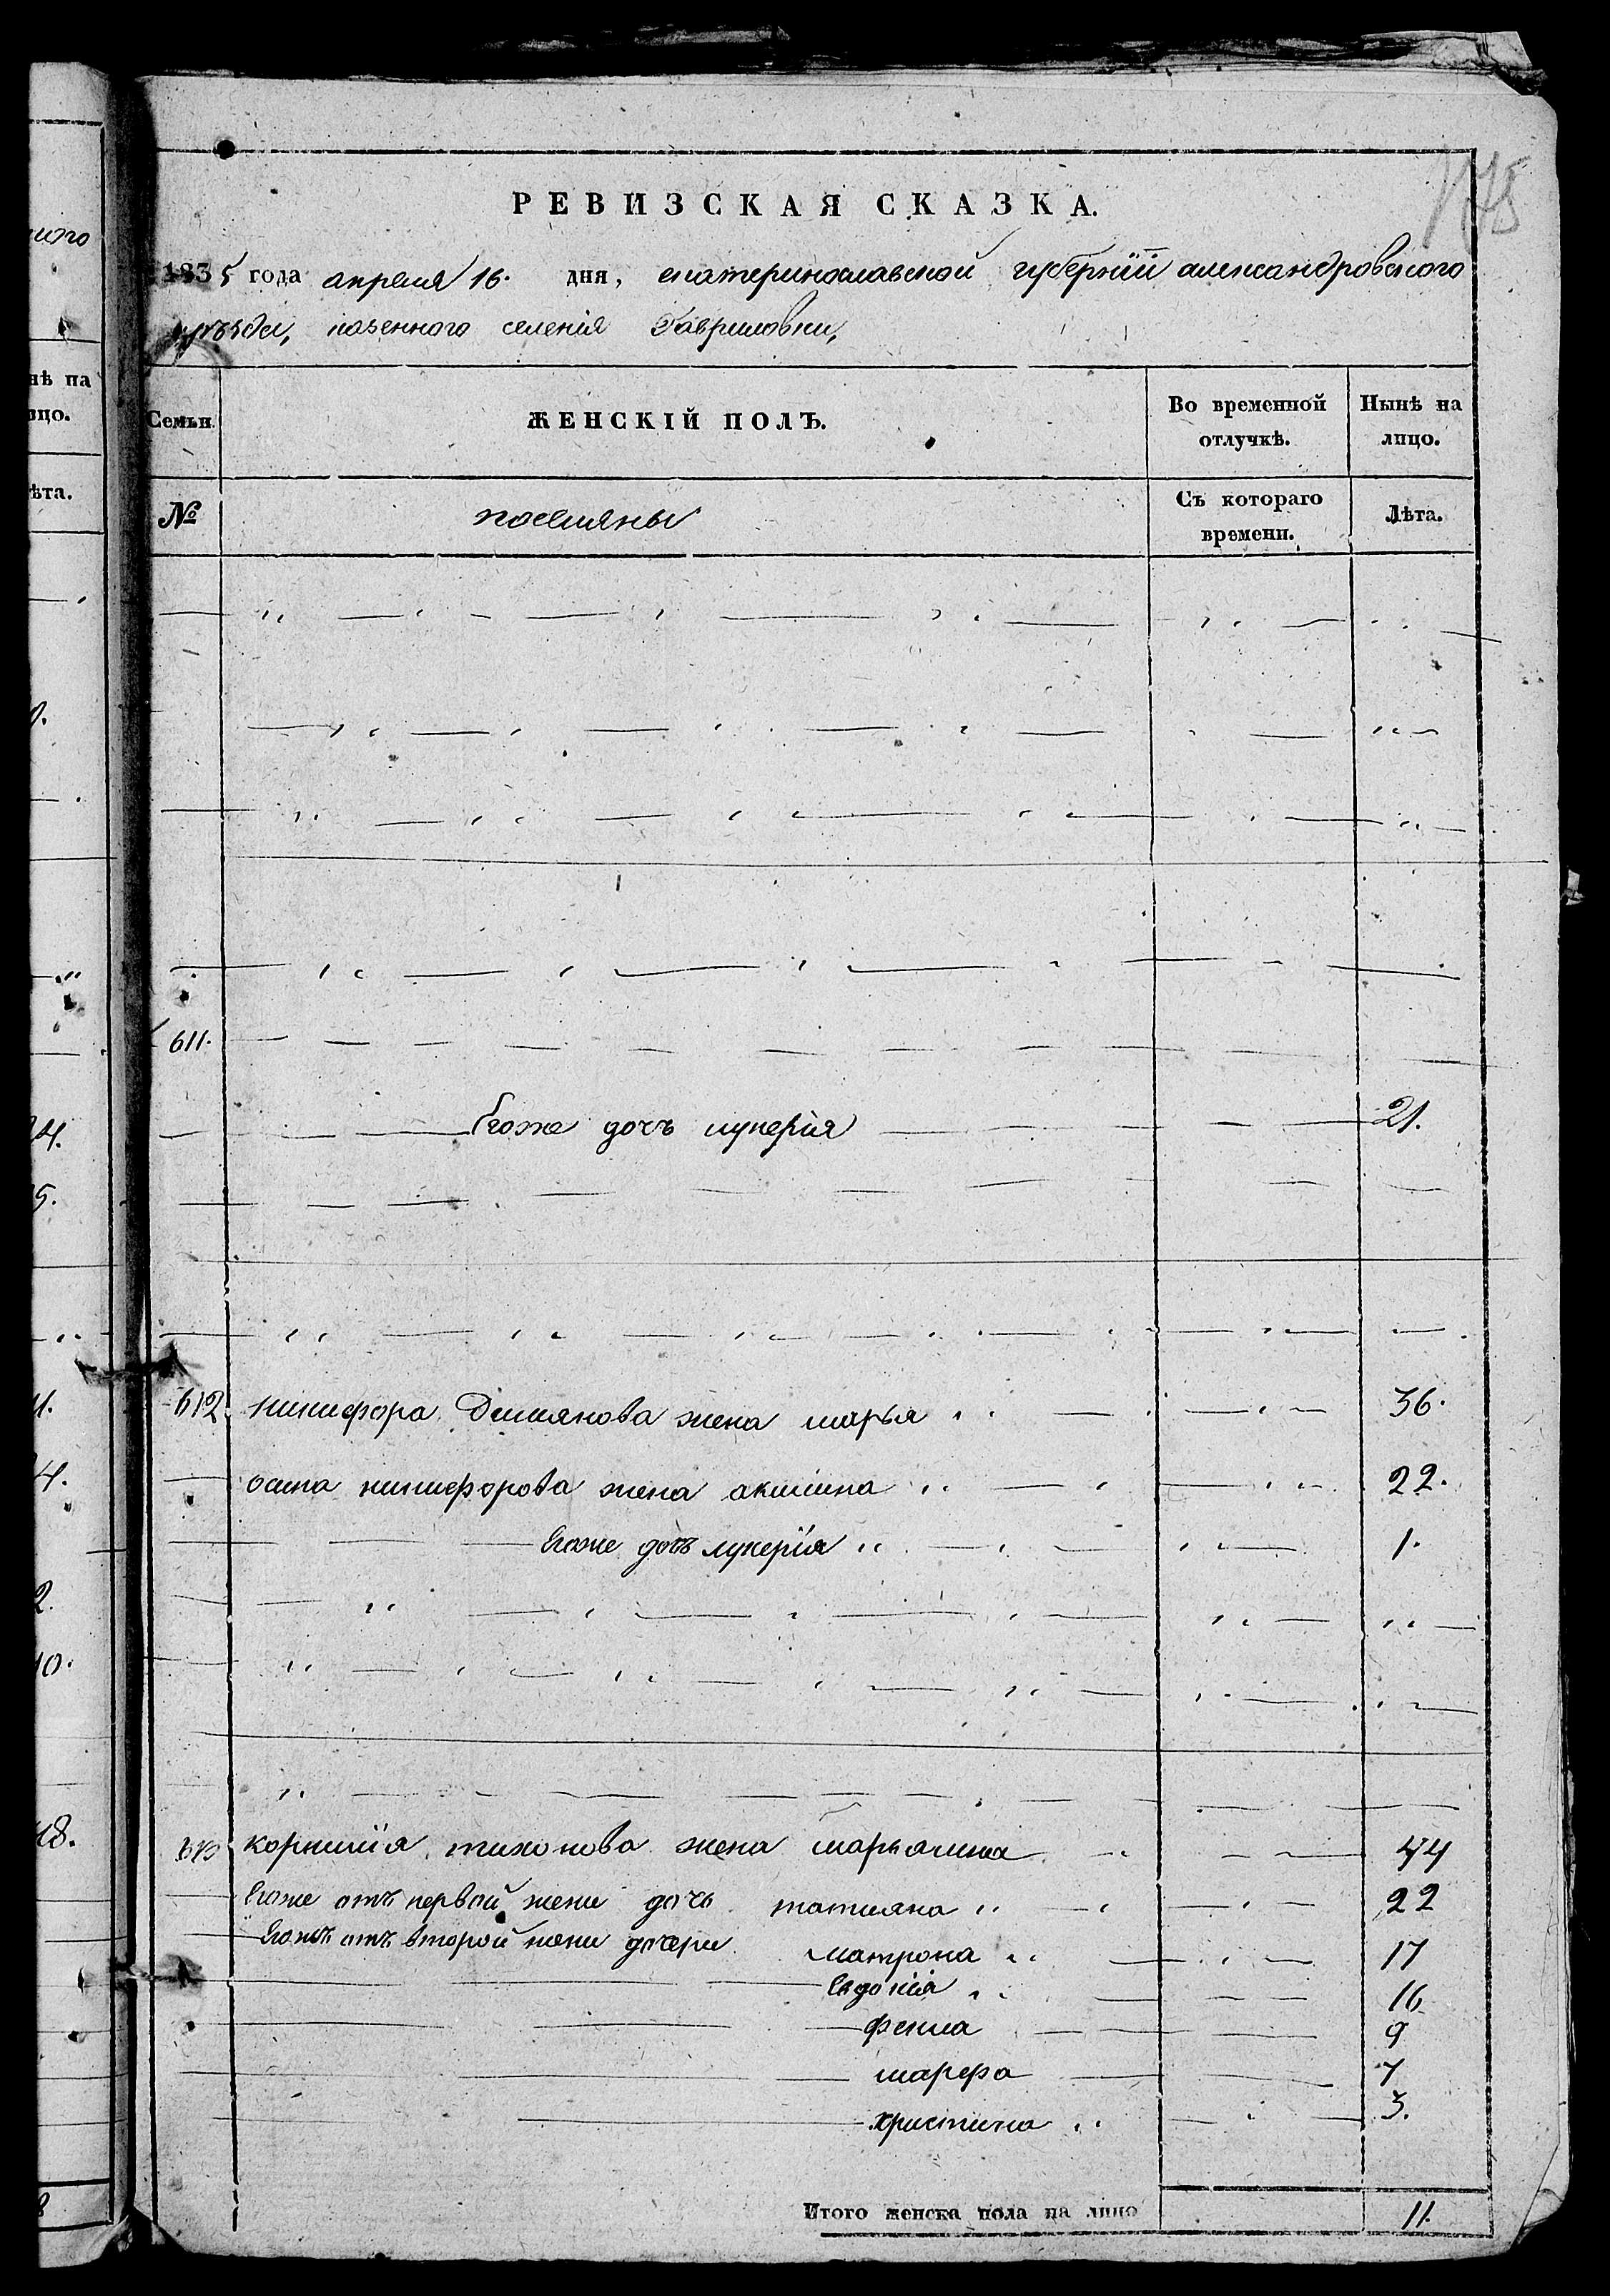 РЕВИЗСКАЯ СКАЗКА.
1835 года апреля 16. дня, екатеринославской губерніи александровского
уѣзда, казенного селенія Гавриловки,
Семьи. ЖЕНСКІЙ ПОЛЪ. Во временной отлучкѣ. Нынѣ на лицо.
№ поселяны Съ котораго времени. Лѣта.
611.
Егоже дочъ лукерія 21.
612. никифора Демянова жена марья 36.
осипа никифорова жена акилина 22.
Егоже дочъ лукерія 1.
613 корнилія тихонова жена марьяна 44
Егоже отъ первой жени дочь татияна 22
Егожъ отъ второй жени дочери матрона 17
Евдокія 16
фекла 9
марфа 7
христина 3.
Итого женска пола на лицо 11.